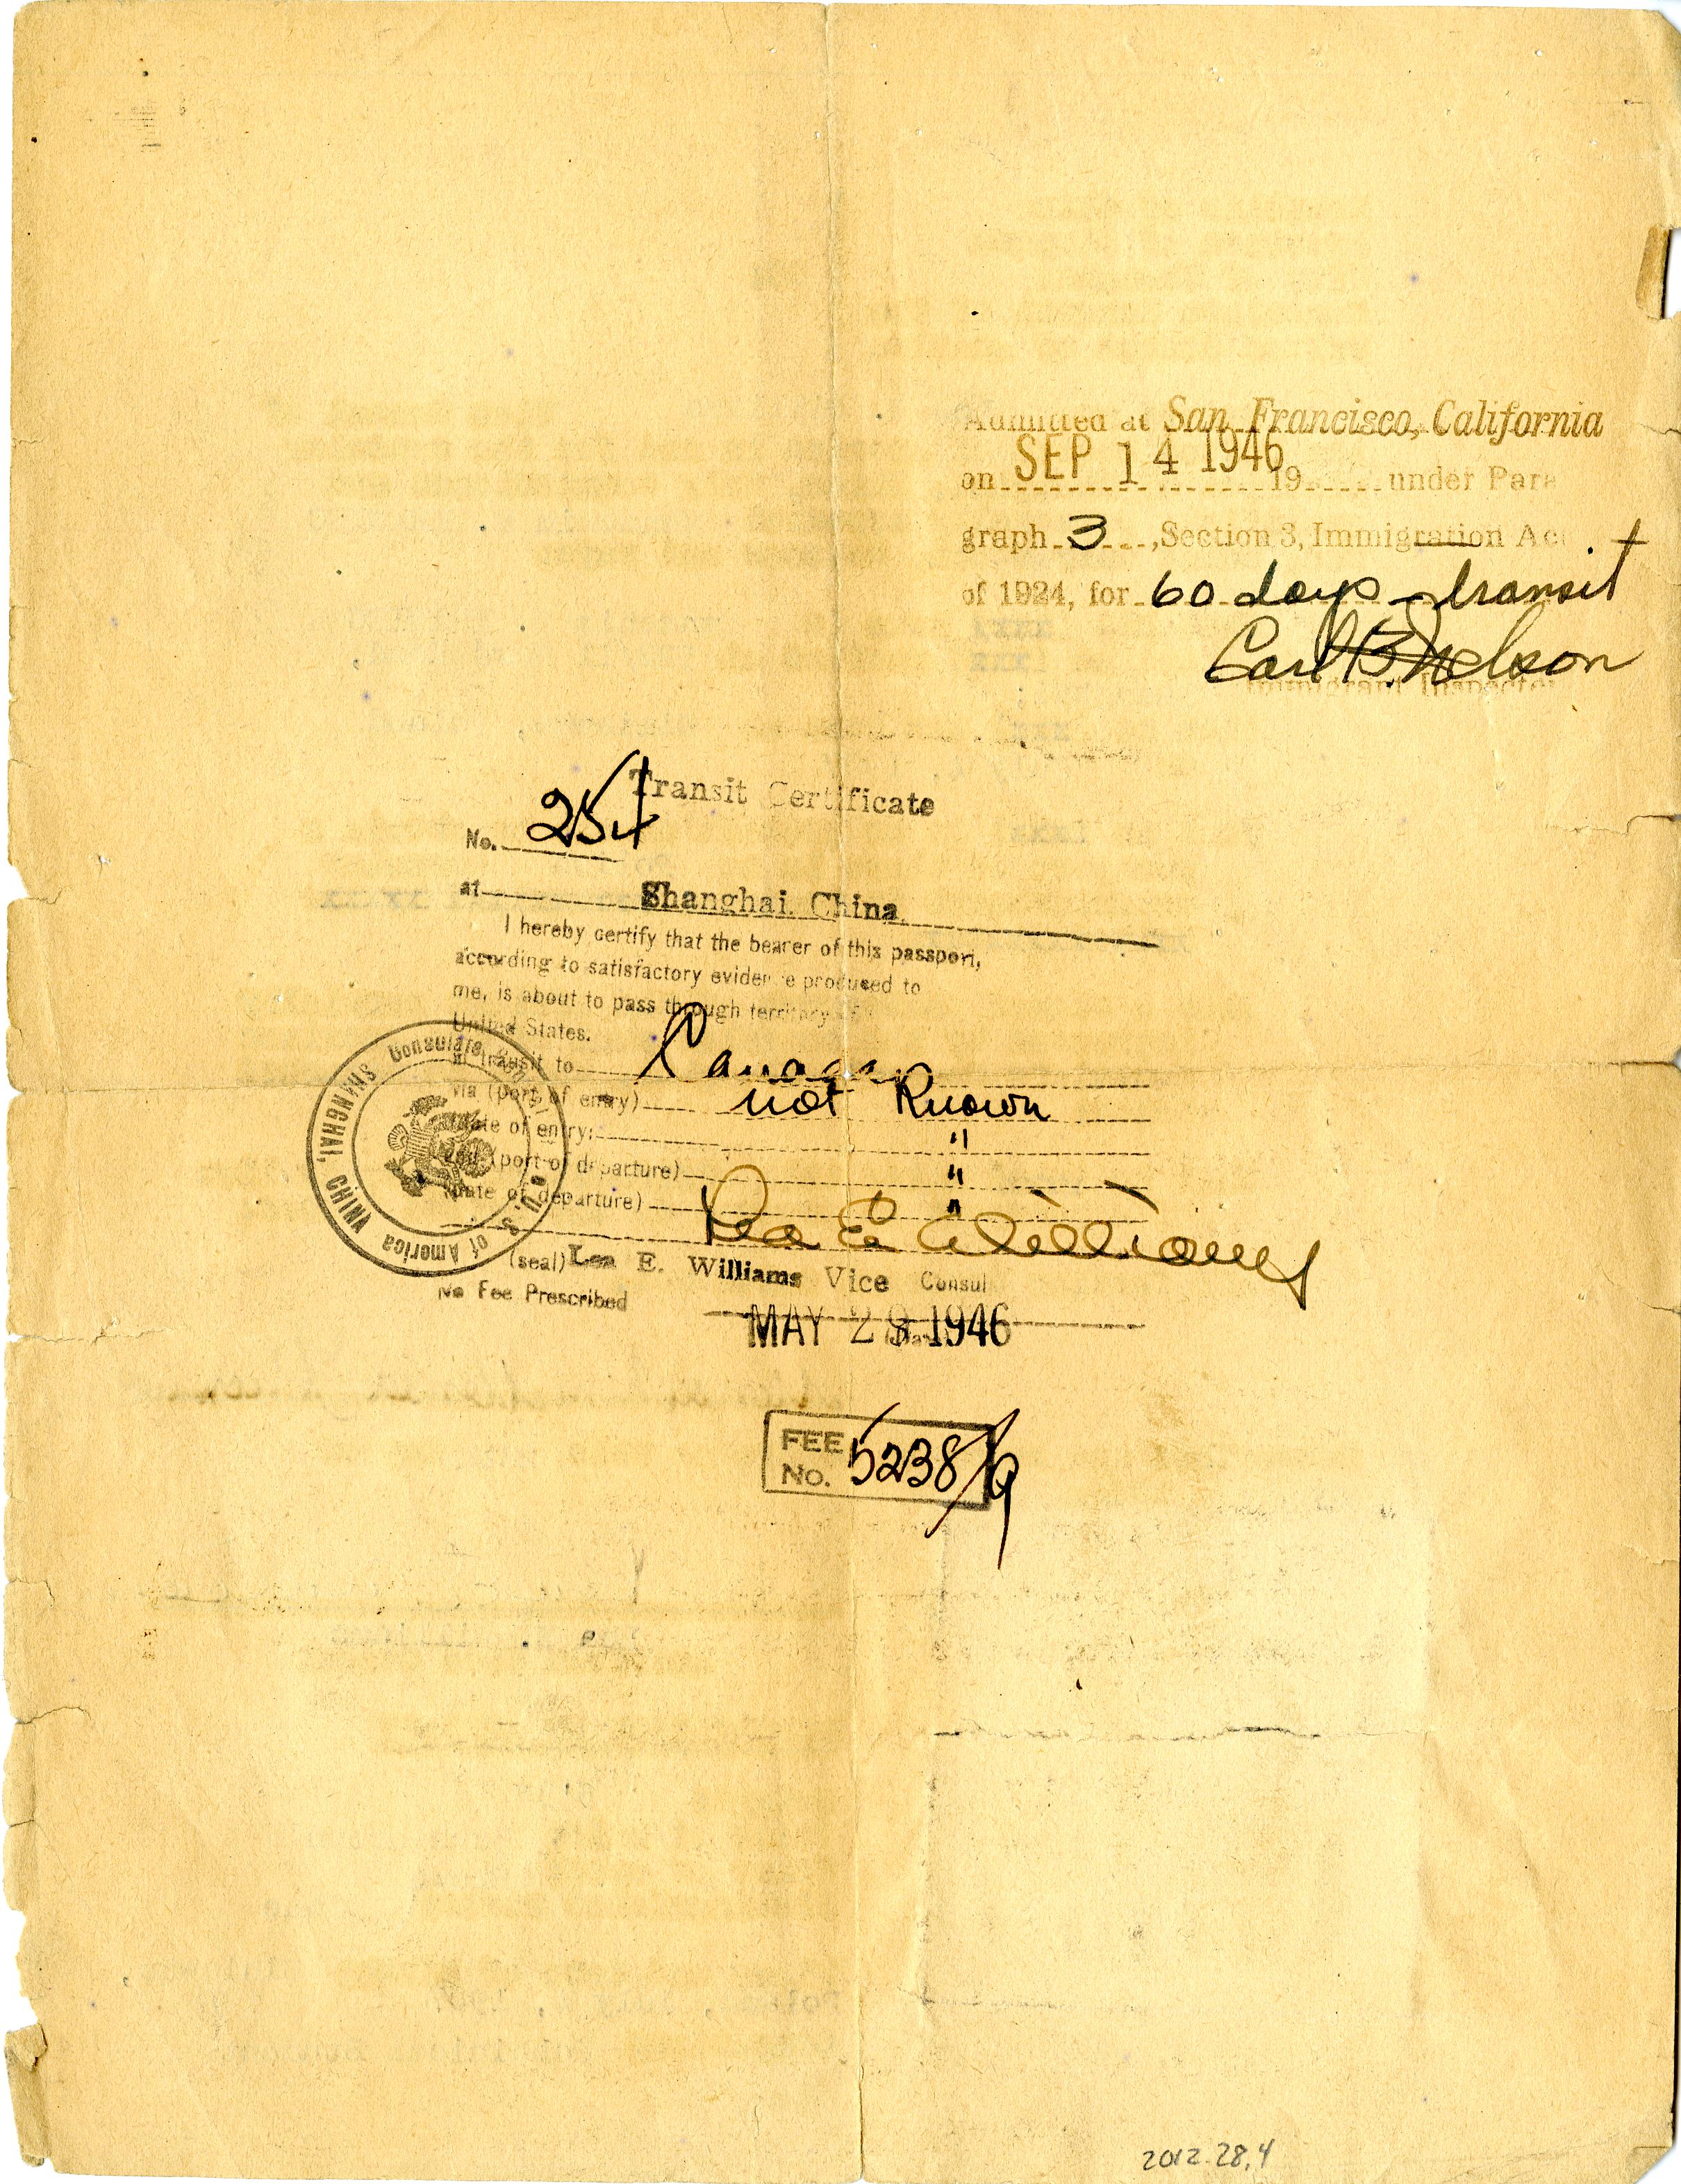 Admitted at San Francisco, California
on SEP 14 1946 19 under Para
graph 3, Section 3, Immigration Act
of 1924, for 60 days - transit
Carl B. Nelson
Immigrant Inspector
Transit Certificate
No. 254
at Shanghai, China
I hereby certify that the bearer of this passport,
according to satisfactory evidence produced to
me, is about to pass through territory of
United States.
in transit to Canada
via (port of entry) not Known
(date of entry) "
and (port of departure) "
(date of departure) "
Lea E. Williams
(seal) Lea E. Williams Vice Consul
No Fee Prescribed
MAY 28 1946
(Date)
SHANGHAI, CHINA Consulate General U.S. of America
FEE
No. 5238/9
2012.28.4